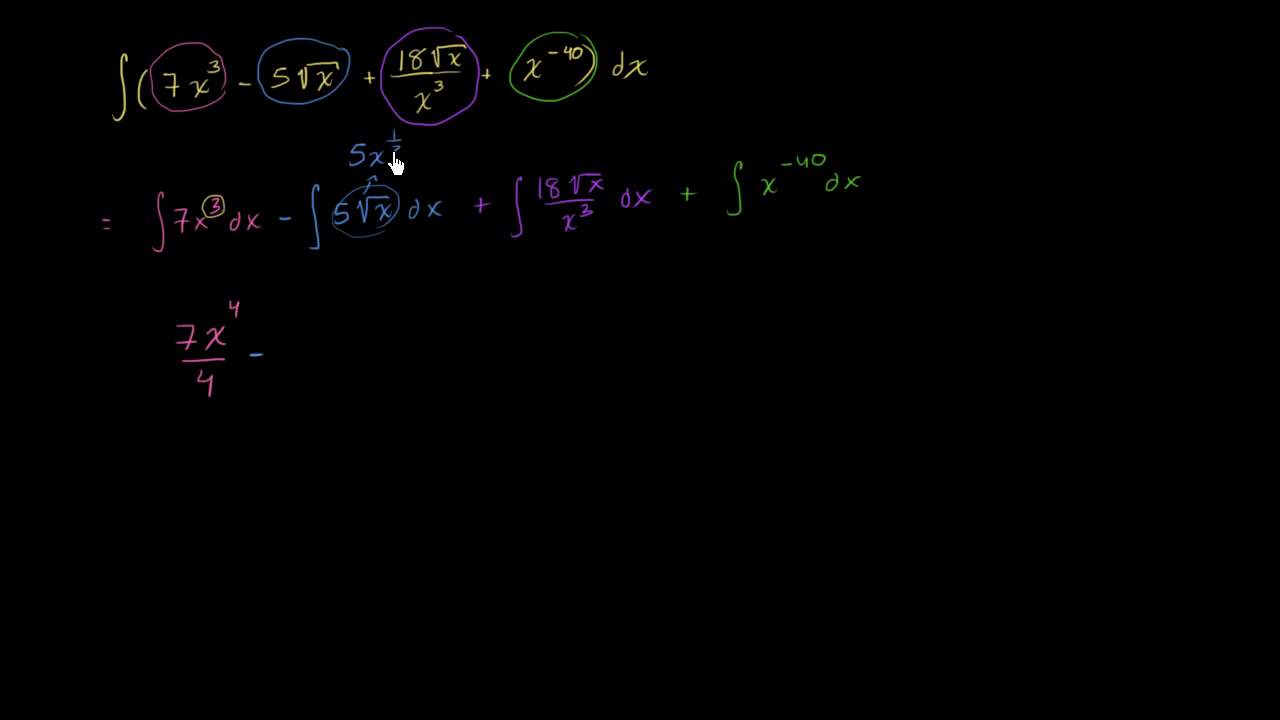 ∫(7x³ - 5√x + 18√x/x³ + x⁻⁴⁰) dx
5x^(1/2)
= ∫7x³dx - ∫5√x dx + ∫18√x/x³ dx + ∫x⁻⁴⁰dx
7x⁴/4 -